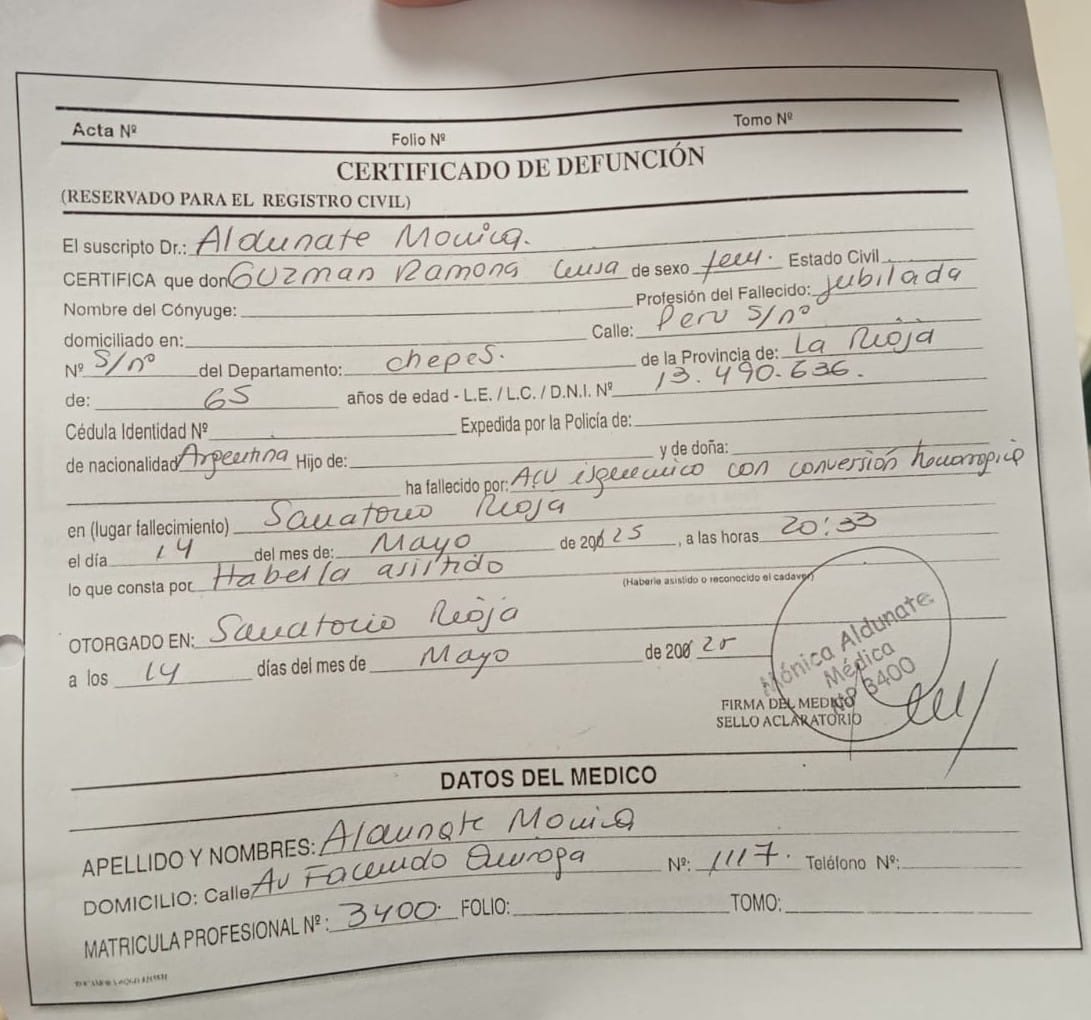 Acta Nº Folio Nº Tomo Nº
CERTIFICADO DE DEFUNCIÓN
(RESERVADO PARA EL REGISTRO CIVIL)
El suscripto Dr.: Aldunate Monica.
CERTIFICA que don Guzman Ramona de sexo fem. Estado Civil
Nombre del Cónyuge: Profesión del Fallecido: jubilada
domiciliado en: Calle: Peru S/nº
Nº S/nº del Departamento: chepes. de la Provincia de: La Rioja
de: 65 años de edad - L.E. / L.C. / D.N.I. Nº 13.490.636.
Cédula Identidad Nº Expedida por la Policía de:
de nacionalidad Argentina Hijo de: y de doña:
ha fallecido por: ACV isquemico con conversión
en (lugar fallecimiento) Sanatorio Rioja
el día 14 del mes de: Mayo de 20 25, a las horas 20:33
lo que consta por Haberla asistido
(Haberle asistido o reconocido el cadaver)
OTORGADO EN: Sanatorio Rioja
a los 14 días del mes de Mayo de 200 25
Mónica Aldunate
Médica
MP 3400
FIRMA DEL MEDICO
SELLO ACLARATORIO
DATOS DEL MEDICO
APELLIDO Y NOMBRES: Aldunate Monica
DOMICILIO: Calle Av Facundo Quiroga Nº: 1117. Teléfono Nº:
MATRICULA PROFESIONAL Nº: 3400. FOLIO: TOMO: